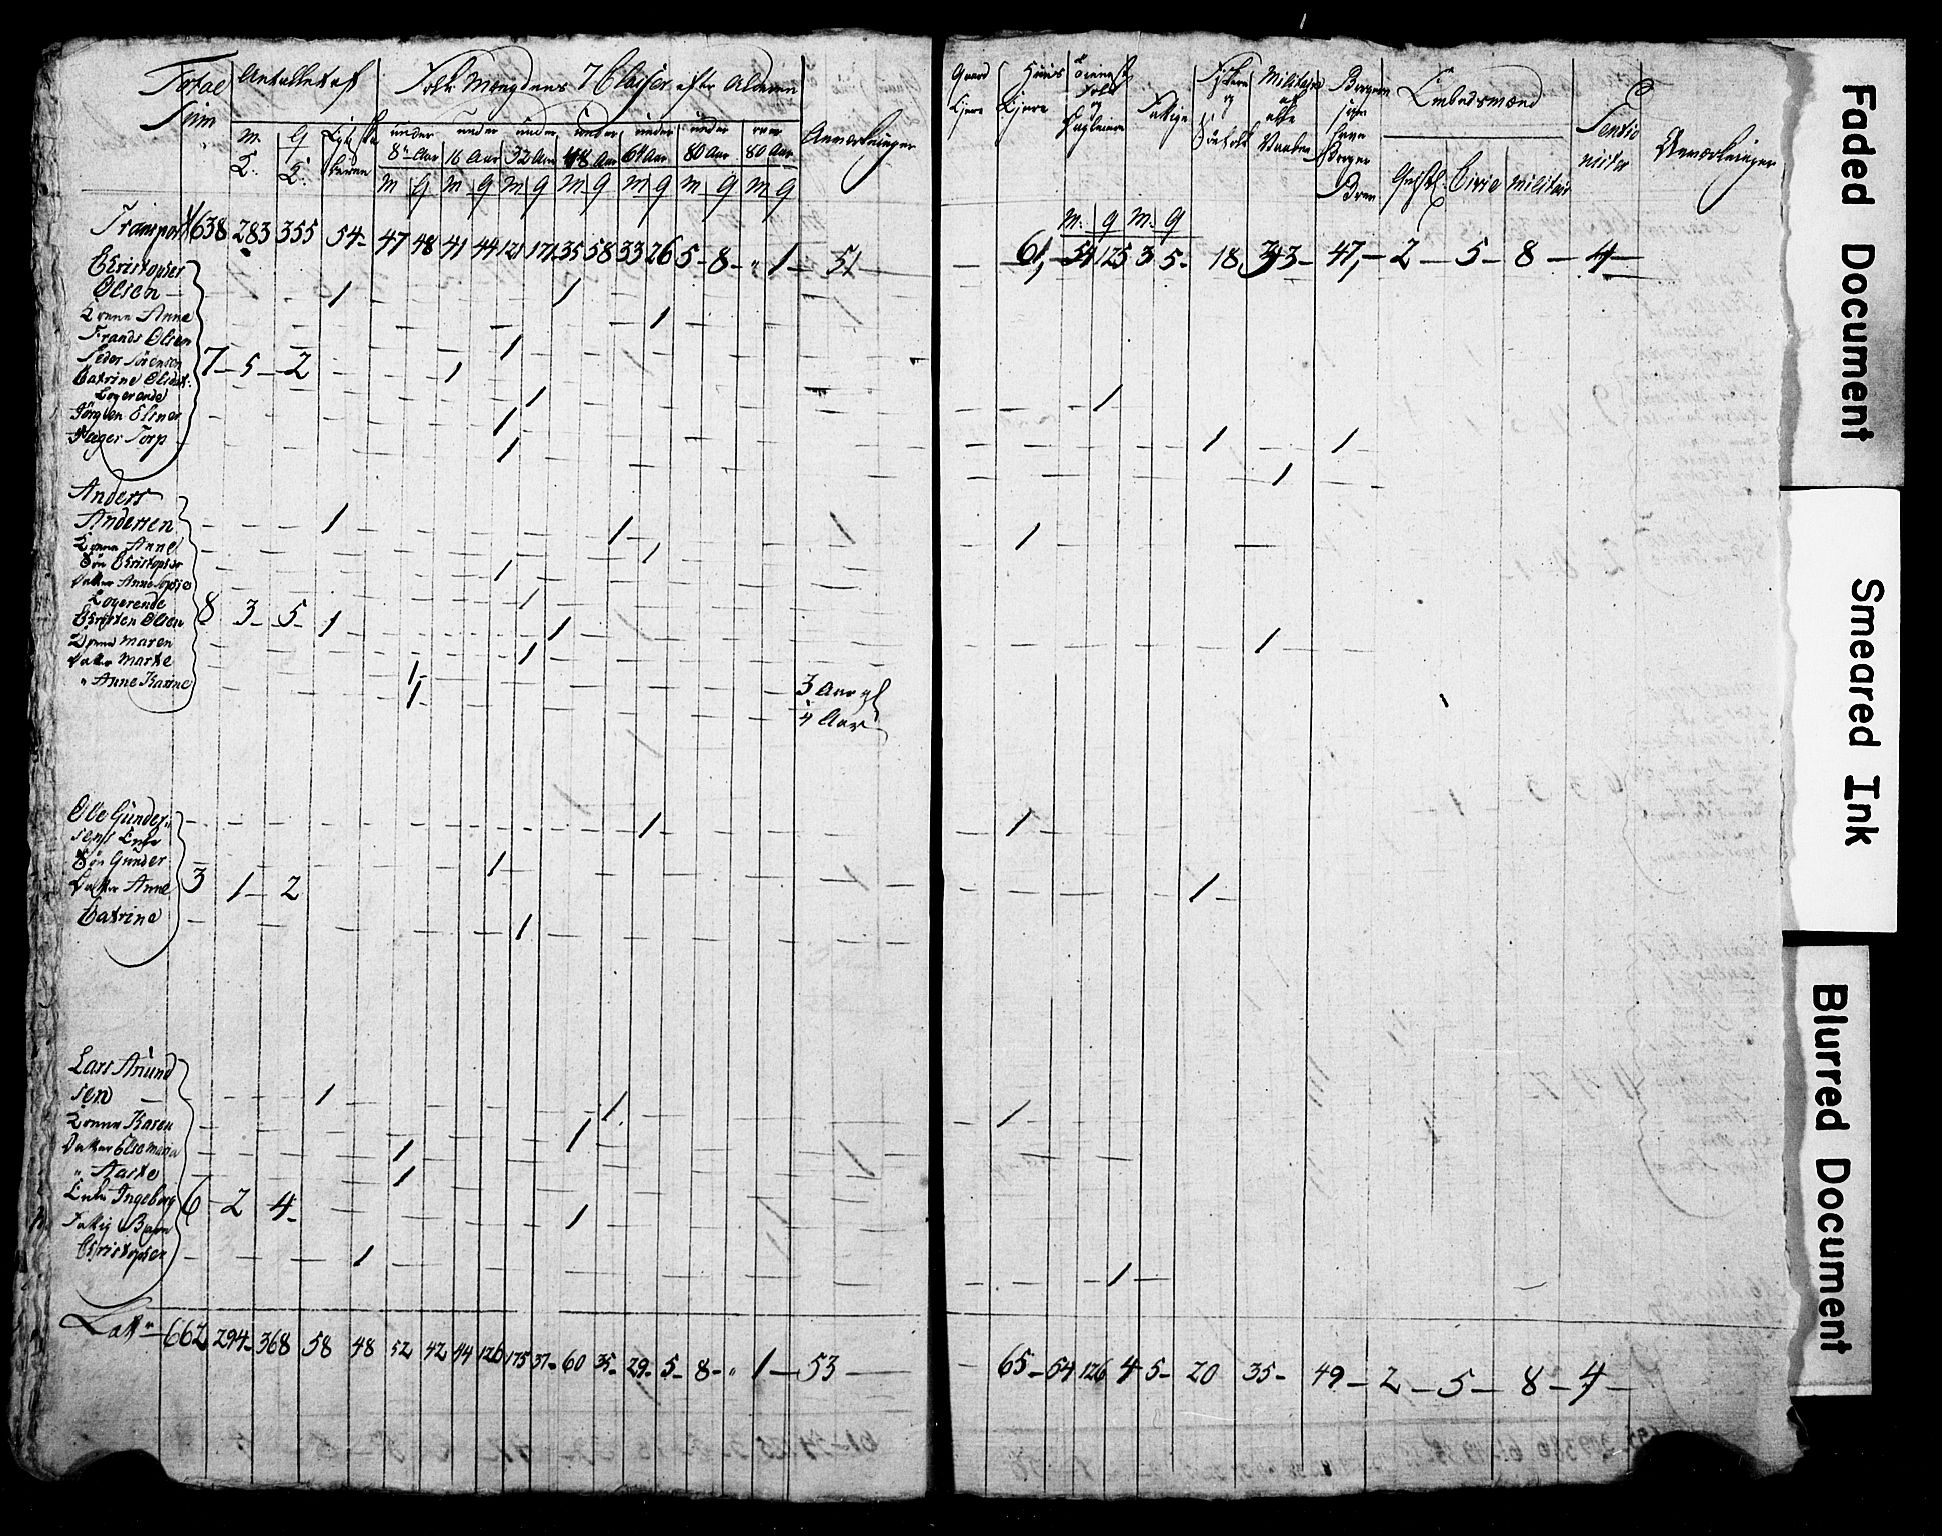 Total
Sum
Antallet af
Folk Mængdens 7 Classer efter Alderen
Anmærkninger
M. K:
Q K:
under 8te Aar
under 16 Aar
under 32 Aar
under 48 Aar
under 64 Aar
under 80 Aar
over 80 Aar
M Q M Q M Q M Q M Q M Q M Q
Transport 638 283 355 54 - 47 48 41 44 121 171 35 58 33 26 5 - 8 - " 1 - 51
Christopher
Olsen 1 1
Kone Anne 1
Frands Olsen 1
Peder Sörensen 7 - 5 - 2 1
Catrine Olsdat:
Logerende 1
Jörgen Elsner 1
Hager Torp 1
Anders
Andersen 1 1 1
Kone Anne 1
Sön Christopher 1
Datter Anne Sophie
Logerende 1
Christen Olsen 8 3 - 5 - 1 1
Kone Maren 1
Datter Marte 1
" Anne Karine 1 3 Aar og
4 Aar
Ole Gunder
sens Enke 1
Sön Gunder 1
Datter Anne 3 1 - 2
Catrine 1
Lars Amund
sen 1 1
Kone Karen 1
Datter Else Maria 1
" Aaste 1
Enke Ingeborg 6 - 2 4 - 1
Fattig Barn
Christophen 1
Lat 662 294 - 368 58 48 52 42 44 126 175 37 - 60 35 - 29 - 5 - 8 - " 1 - 53
Gaard
Ejere
Huus
Ejere
Tieneste
Folk
og
Daglejere
Fattige
Fiskere
og
Söefolk
Militaire
af
alle
Vaaben
Borgere
som
have
Borger
Brev
Embedsmænd
Geistl. Civile Militair
Pensio
nister
Anmærkninger
M. Q M. Q
61, - 54 125 3 5 - 18 33 - 47, - 2 - 5 - 8 - 4 -
1
1 1
1
1
1
1
1
1
1
65 - 54 126 4 5 - 20 35 - 49 - 2 - 5 - 8 - 4 -
Faded Document
Smeared Ink
Blurred Document